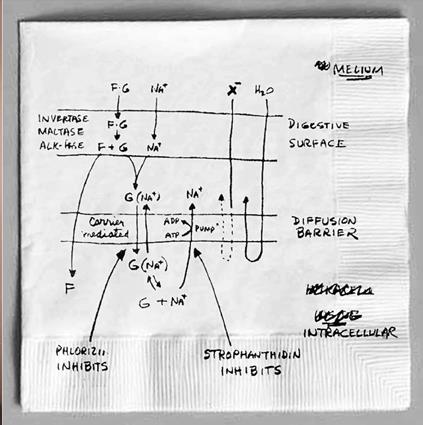 MELIUM
F·G Na⁺ X⁻ H₂O
INVERTASE
MALTASE
F·G
F + G Na⁺
DIGESTIVE
SURFACE
G(Na⁺) Na⁺
Carrier
mediated
ADP
ATP
PUMP
DIFFUSION
BARRIER
G(Na⁺)
G + Na⁺
F
INTRACELLULAR
PHLORIZIN
INHIBITS
STROPHANTHIDIN
INHIBITS